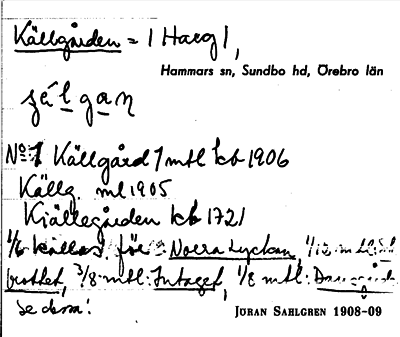 Källgården = / Harg /,
Hammars sn, Sundbo hd, Örebro län
No 1 Källgård 1 mtl kb 1906
Källg. ml 1905
Kiällegården kb 1721
1/6 kallas för Norra Lyckan, 1/12 mtl:
3/8 mtl: Intaget, 1/8 mtl:
se dessa!
JÖRAN SAHLGREN 1908-09